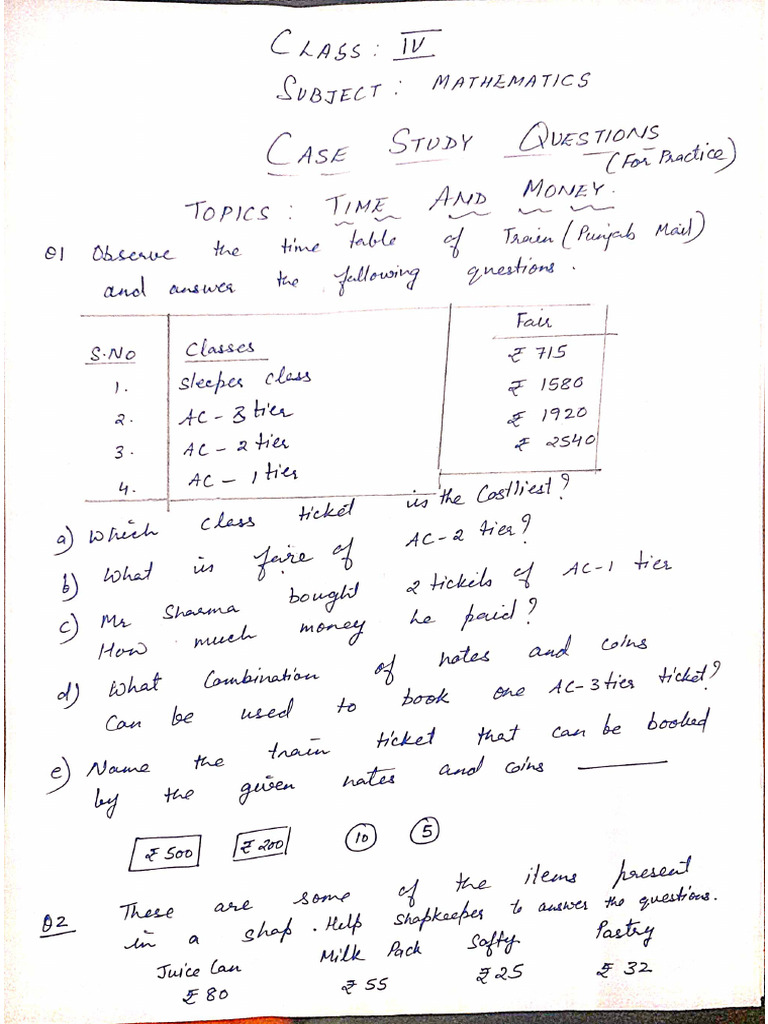 CLASS: IV
SUBJECT: MATHEMATICS
CASE STUDY QUESTIONS
(For Practice)
TOPICS: TIME AND MONEY.
Q1 Observe the time table of Train (Punjab Mail)
and answer the following questions.
S.NO Classes Fair
1. Sleeper class ₹ 715
2. AC-3 tier ₹ 1580
3. AC-2 tier ₹ 1920
4. AC-1 tier ₹ 2540
a) Which class ticket is the Costliest?
b) What is faire of AC-2 tier?
c) Mr Sharma bought 2 tickets of AC-1 tier
How much money he paid?
d) What Combination of notes and coins
Can be used to book one AC-3 tier ticket?
e) Name the train ticket that can be booked
by the given notes and coins ______
₹ 500 ₹ 200 10 5
Q2 These are some of the items present
in a shap. Help shapkeeper to answer the questions.
Juice Can Milk Pack Softy Pastry
₹ 80 ₹ 55 ₹ 25 ₹ 32